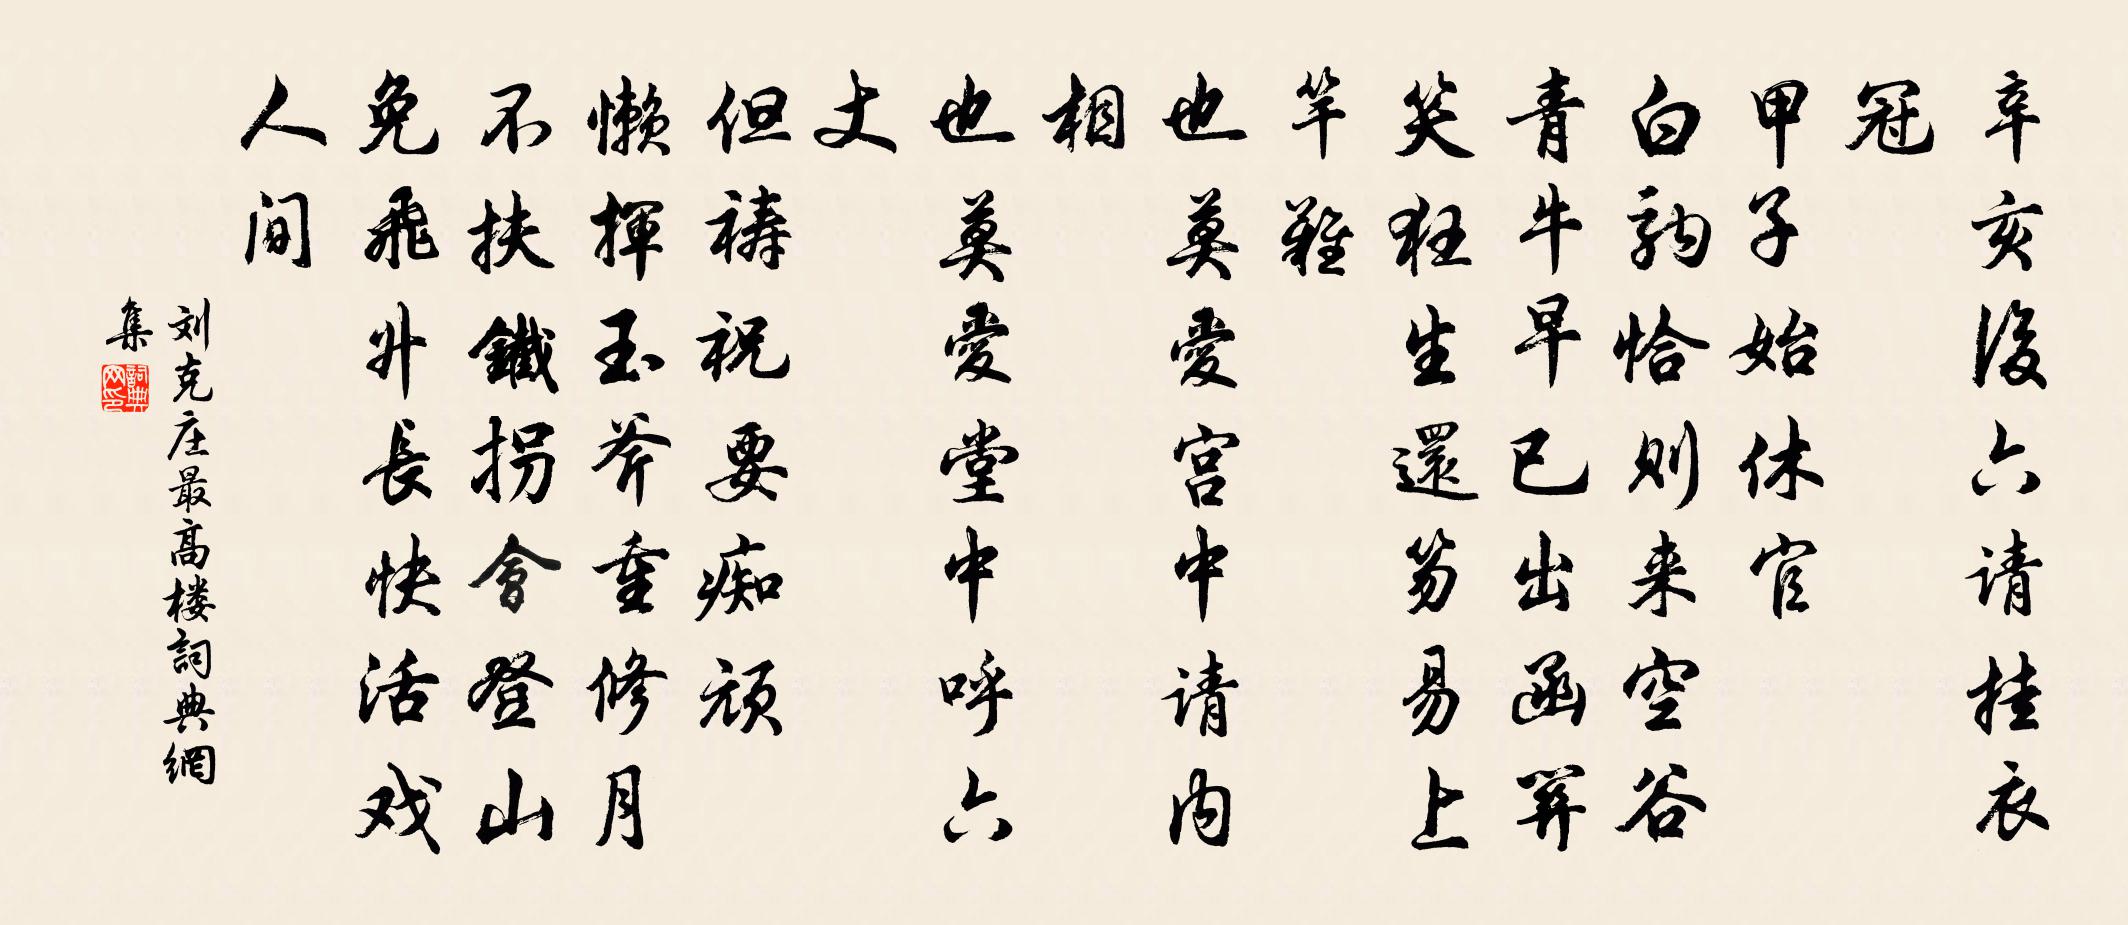 辛亥後六请挂衣
冠
甲子始休官
白驹恰则来空谷
青牛早已出函關
笑狂生還笏易上
竿難
也莫愛宫中请内
相
也莫愛堂中呼六
丈
但祷祝要痴頑
懒揮玉斧重修月
不扶鐵拐會登山
免飛升長快活戏
人间
刘克庄最高楼詞典網
集
詞典网印